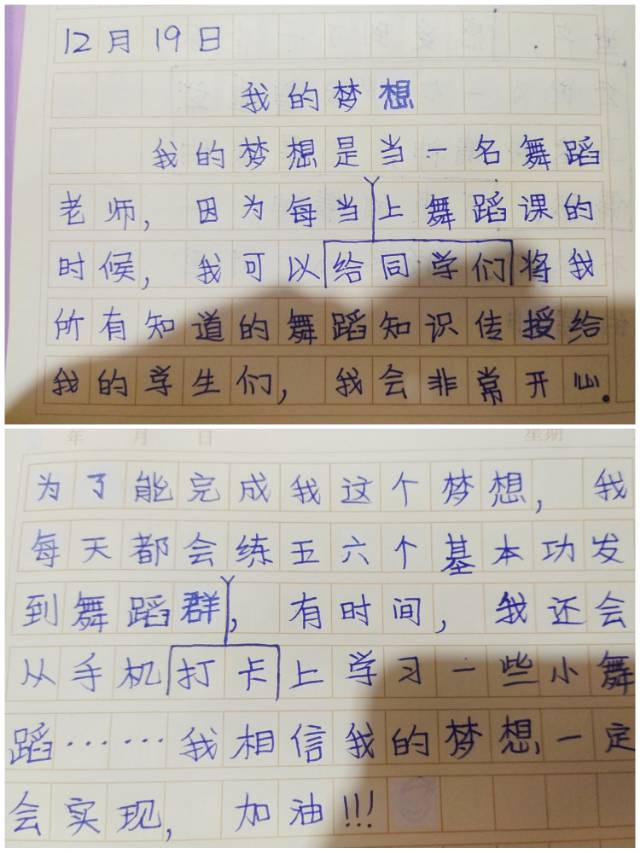 12月19日
我的梦想
我的梦想是当一名舞蹈
老师，因为每当上舞蹈课的
时候，我可以给同学们将我
所有知道的舞蹈知识传授给
我的学生们，我会非常开心。
年 月 日 星期
为了能完成我这个梦想，我
每天都会练五六个基本功发
到舞蹈群，有时间，我还会
从手机打卡上学习一些小舞
蹈……我相信我的梦想一定
会实现，加油!!!